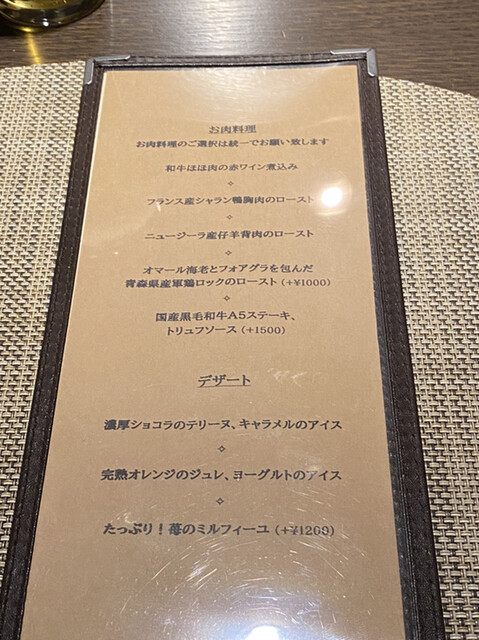 お肉料理
お肉料理のご選択は統一でお願い致します
和牛ほほ肉の赤ワイン煮込み
フランス産シャラン鴨胸肉のロースト
ニュージーラ産仔羊背肉のロースト
オマール海老とフォアグラを包んだ
青森県産軍鶏ロックのロースト (+¥1000)
国産黒毛和牛A5ステーキ、
トリュフソース (+1500)
デザート
濃厚ショコラのテリーヌ、キャラメルのアイス
完熟オレンジのジュレ、ヨーグルトのアイス
たっぷり!苺のミルフィーユ (+¥1200)